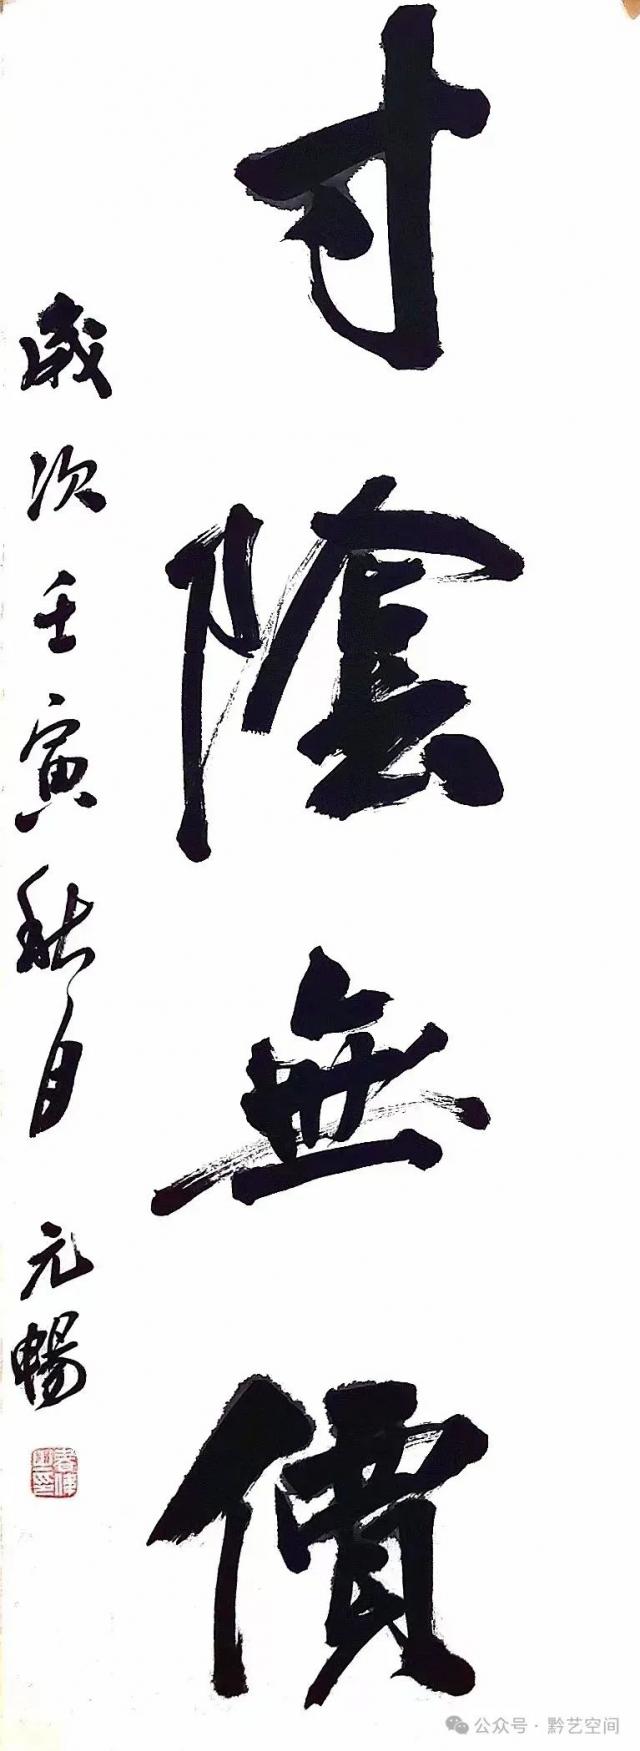 寸陰無價
歲次壬寅秋月 元暢
公众号·黔艺空间